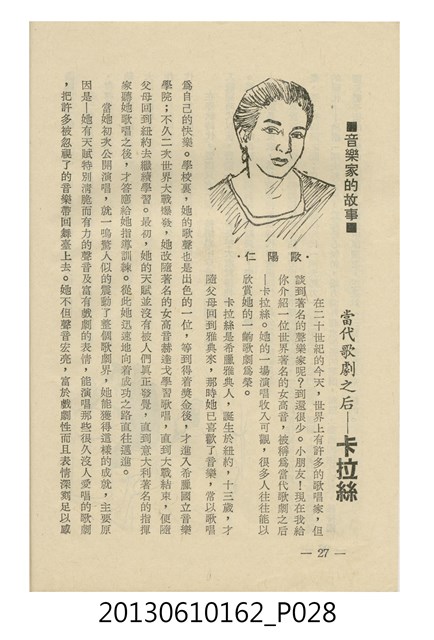 ■音樂家的故事■
當代歌劇之后——卡拉絲
·歐陽仁·
在二十世紀的今天，世界上有許多的歌唱家，但
談到著名的聲樂家呢？到還很少。小朋友！現在我給
你介紹一位世界著名的女高音，被稱爲當代歌劇之后
——卡拉絲。她的一場演唱收入可觀，很多人往往能以
欣賞她的一齣歌劇爲榮。
卡拉絲是希臘雅典人，誕生於紐約，十三歲，才
隨父母回到雅典來，那時她已喜歡了音樂，常以歌唱
爲自己的快樂。學校裏，她的歌聲也是出色的一位，等到得着獎金後，才進入希臘國立音樂
學院；不久二次世界大戰爆發，她改隨著名的女高音赫達戈學習歌唱，直到大戰結束，便隨
父母回到紐約去繼續學習。最初，她的天賦並沒有被人們眞正發覺，直到意大利著名的指揮
家聽她歌唱之後，才答應給她指導訓練。從此她迅速地向着成功之路直往邁進。
當她初次公開演唱，就一鳴驚人似的震動了整個歌劇界，她能獲得這樣的成就，主要原
因是——她有天賦特別清脆而有力的聲音及富有戲劇的表情，能演唱那些很久沒人愛唱的歌劇
，把許多被忽視了的音樂帶回舞臺上去。她不但聲音宏亮，富於戲劇性而且表情深刻足以感
— 27 —
20130610162_P028